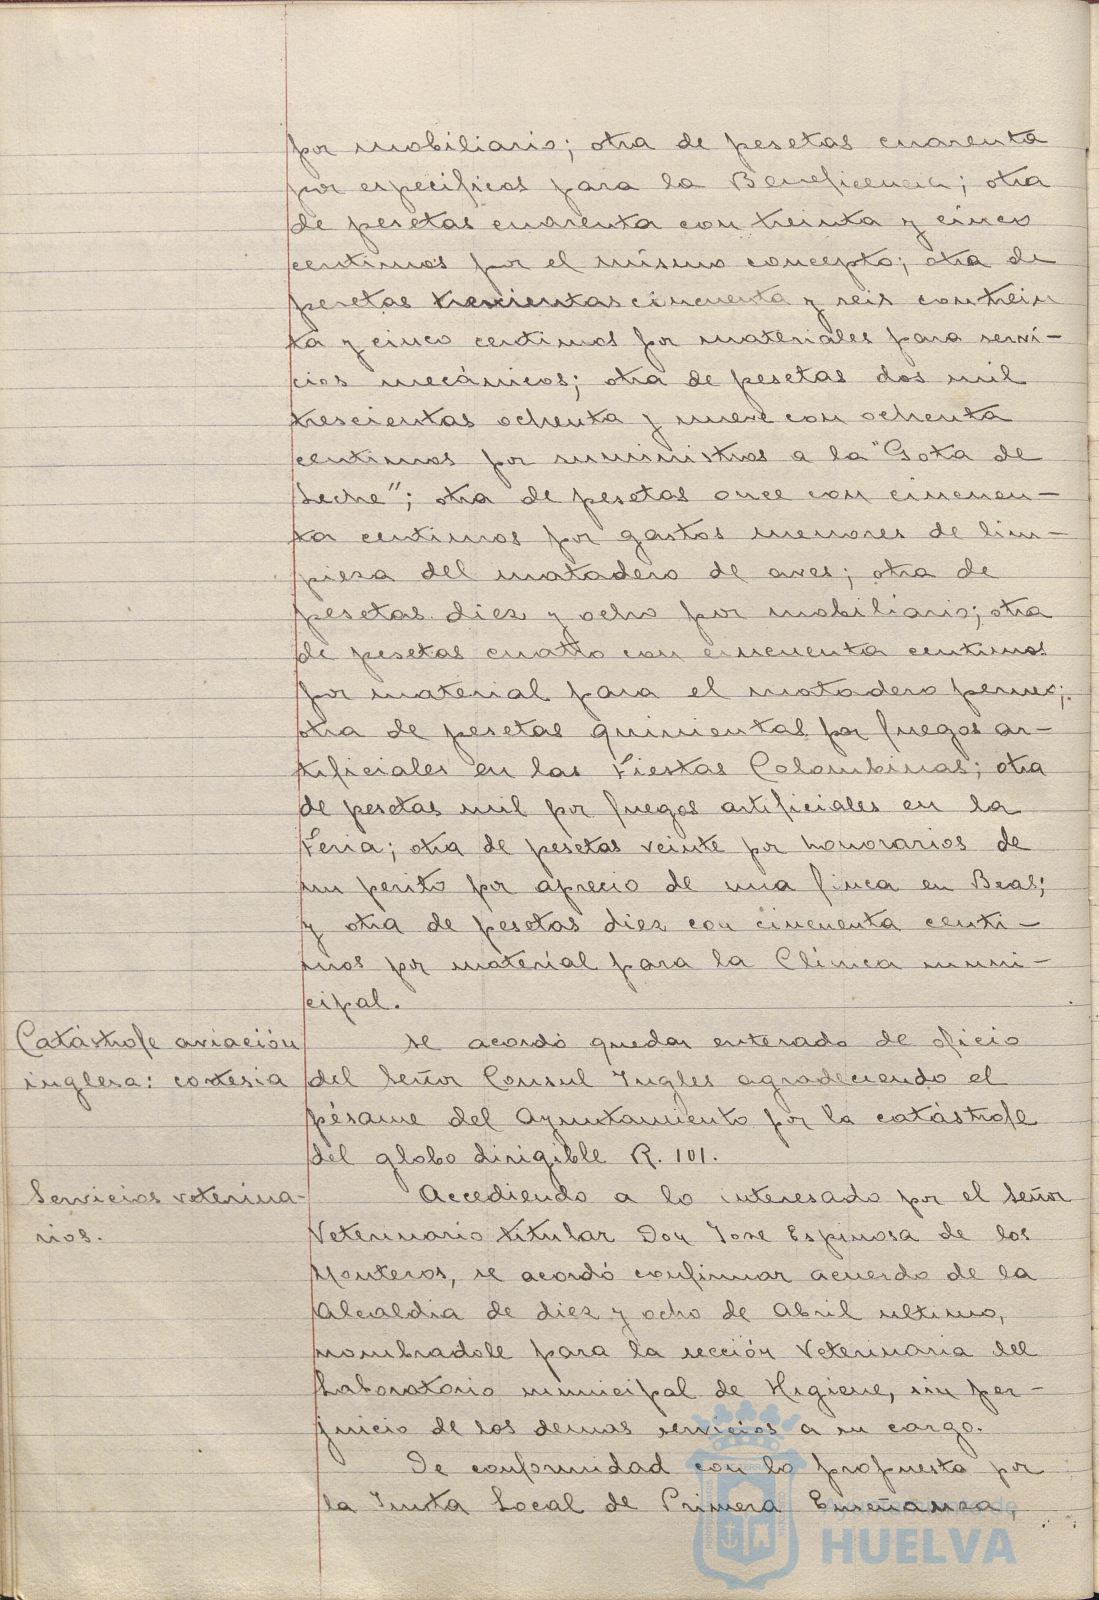 por mobiliario; otra de pesetas cuarenta
por especificos para la Beneficencia; otra
de pesetas cuarenta con treinta y cinco
centimos por el mismo concepto; otra de
pesetas trescientas cincuenta y seis con trein
ta y cinco centimos por materiales para servi-
cios mecánicos; otra de pesetas dos mil
trescientas ochenta y nueve con ochenta
centimos por suministros a la "Gota de
Leche"; otra de pesetas once con cincuen-
ta centimos por gastos menores de lim-
pieza del matadero de aves; otra de
pesetas diez y ocho por mobiliario; otra
de pesetas cuatro con cincuenta centimos
por material para el matadero
otra de pesetas quinientas por fuegos ar-
tificiales en las Fiestas Colombinas; otra
de pesetas mil por fuegos artificiales en la
Feria; otra de pesetas veinte por honorarios de
un perito por aprecio de una finca en Beas;
y otra de pesetas diez con cincuenta centi-
mos por material para la Clínica muni-
cipal.
Catástrofe aviación
inglesa: cortesia
se acordó quedar enterado de oficio
del Señor Consul Ingles agradeciendo el
pésame del Ayuntamiento por la catástrofe
del globo dirigible R. 101.
Servicios veterina-
rios.
Accediendo a lo interesado por el Señor
Veterinario titular Don Jose Espinosa de los
Monteros, se acordó confirmar acuerdo de la
Alcaldia de diez y ocho de Abril ultimo,
nombradole para la sección Veterinaria del
Laboratorio municipal de Higiene, sin per-
juicio de los demas servicios a su cargo.
De conformidad con lo propuesto por
la Junta Local de Primera Enseñanza,
Ayuntamiento de
HUELVA